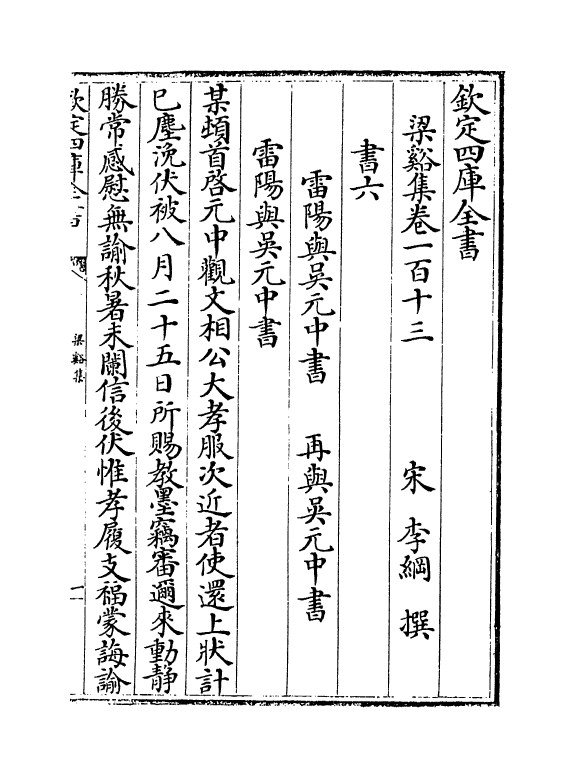 欽定四庫全書
梁谿集卷一百十三
宋 李綱 撰
書六
雷陽與吳元中書 再與吳元中書
雷陽與吳元中書
某頓首啓元中觀文相公大孝服次近者使還上狀計
已塵浼伏被八月二十五日所賜教墨竊審邇來動静
勝常感慰無諭秋暑未闌信後伏惟孝履支福蒙誨諭
欽定四庫全書
梁谿集
一